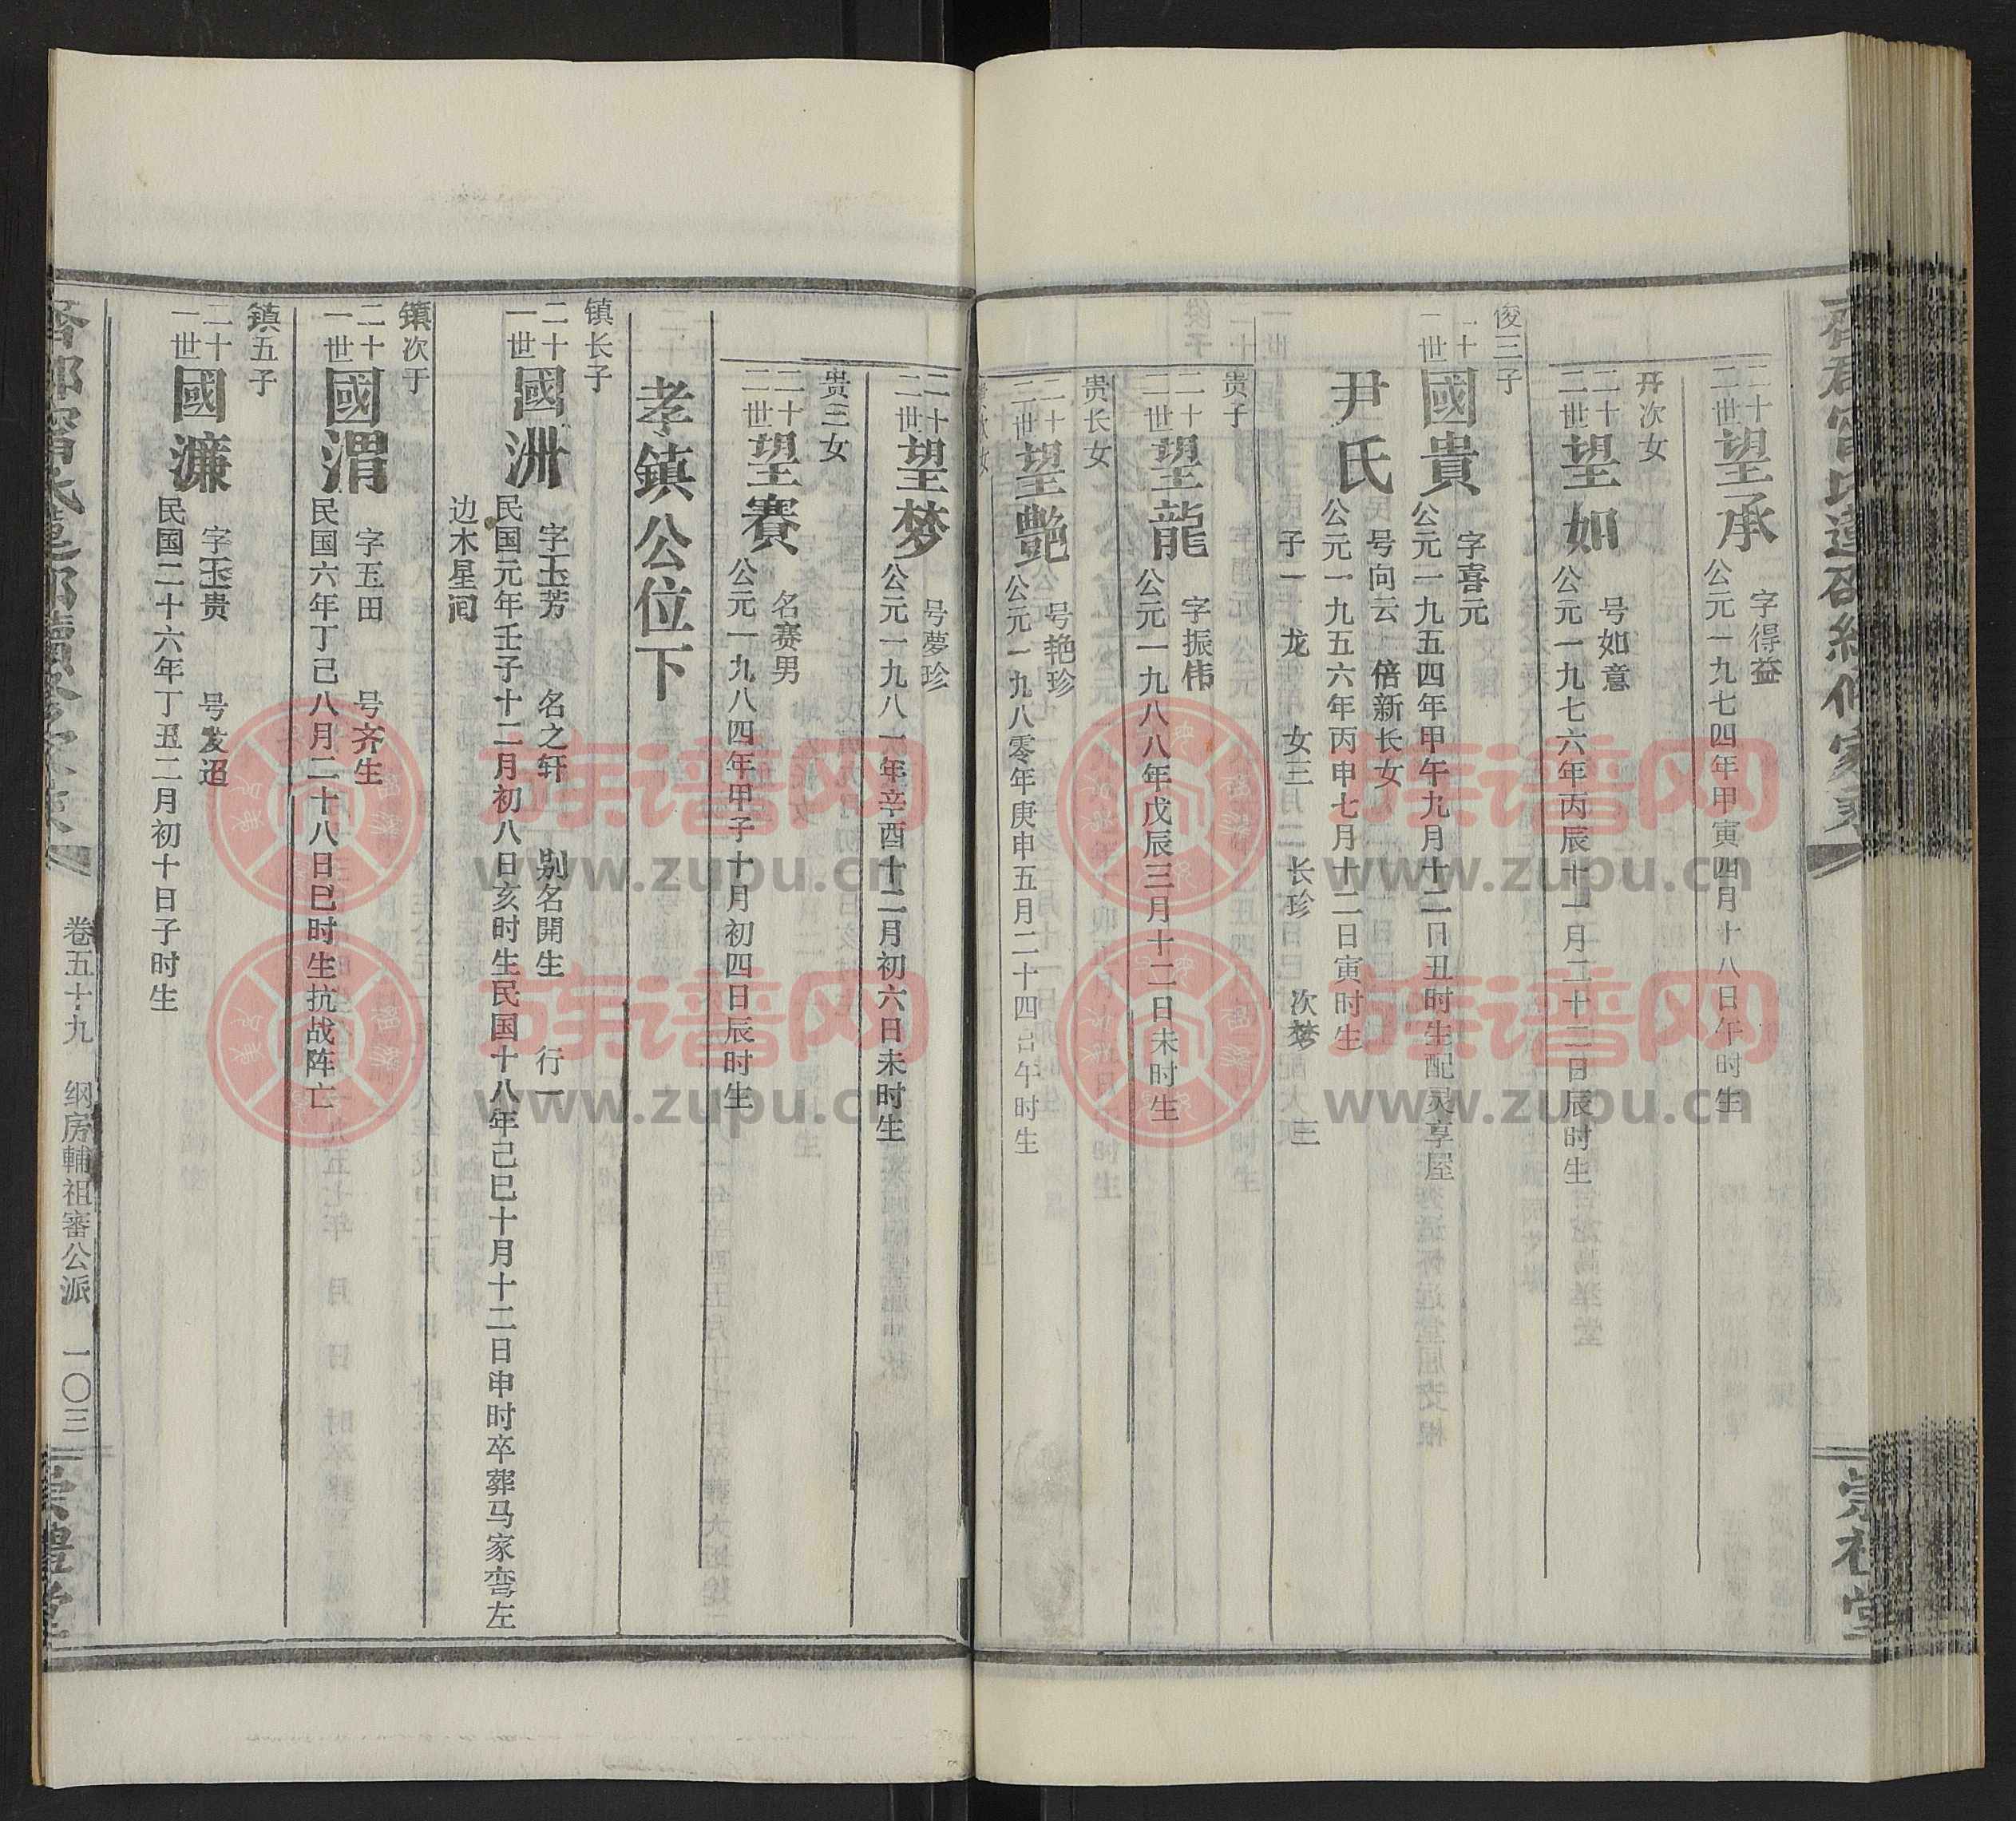 二十二世 望承 字得益
公元一九七四年甲寅四月十八日午时生
开次女
二十二世 望如 号如意
公元一九七六年丙辰十一月二十二日辰时生
俊三子
二十一世 國貴 字喜元
公元一九五四年甲午九月十二日丑时生配灵享屋
尹氏 号向云 倍新长女
公元一九五六年丙申七月十二日寅时生
子一 龙 女三 长珍 次梦 三
贵子
二十二世 望龍 字振伟
公元一九八八年戊辰三月十二日未时生
贵长女
二十二世 望艷 号艳珍
公元一九八零年庚申五月二十四日午时生
二十二世 望梦 号夢珍
公元一九八一年辛酉十二月初六日未时生
贵三女
二十二世 望賽 名赛男
公元一九八四年甲子十月初四日辰时生
孝鎮公位下
镇长子
二十一世 國洲 字玉芳 名之轩 别名開生 行一
民国元年壬子十二月初八日亥时生民国十八年己巳十月十二日申时卒葬马家弯左
边木星间
镇次子
二十一世 國渭 字玉田 号齐生
民国六年丁己八月二十八日巳时生抗战阵亡
镇五子
二十一世 國濂 字玉贵 号发迢
民国二十六年丁丑二月初十日子时生
卷五十九 纲房輔祖審公派 一〇三
族谱网
www.zupu.cn
族谱网
www.zupu.cn
族谱网
www.zupu.cn
族谱网
www.zupu.cn